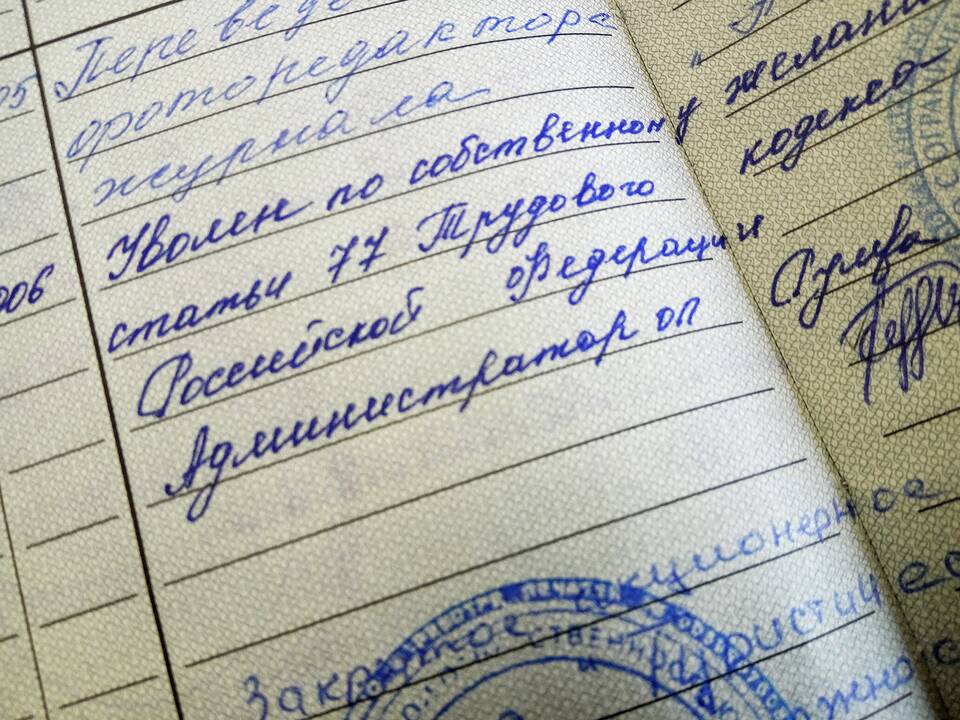 05 Переведе
фоторедактора "П
журнала
Уволен по собственному желани
006 статьи 77 Трудового кодекса
Российской Федерации
Администратор оп Сулева
Закрытое акционерное